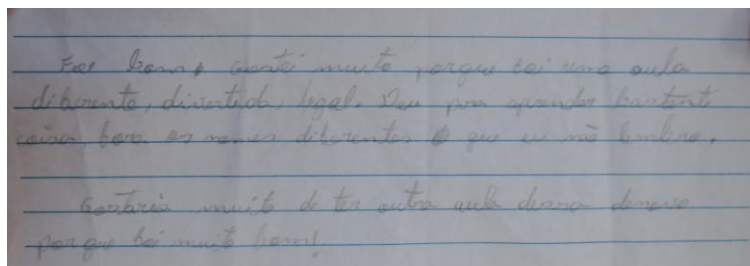 Foi bom, Gostei muito porque foi uma aula
diferente, divertida, legal. Deu pra aprender bastante
coisa, fora os nomes diferentes que eu não lembro.
Gostaria muito de ter outra aula dessa denovo
porque foi muito bom!